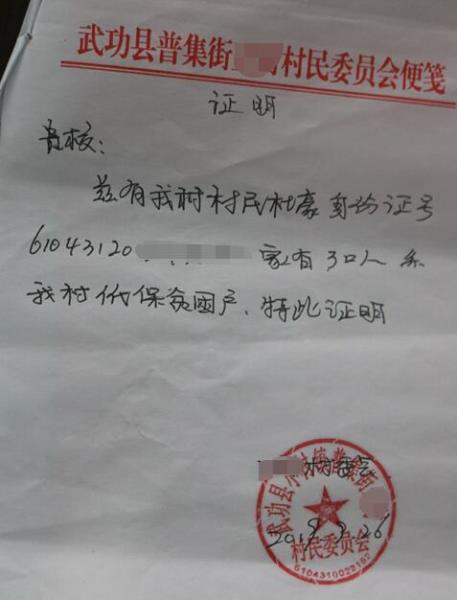 武功县普集街 村民委员会便笺
证明
贵校:
兹有我村村民杜豪身份证号
61043120 家有3口人 系
我村低保贫困户、特此证明
村委会
2019 3 26
武功县 普集街
村民委员会
6104310022182